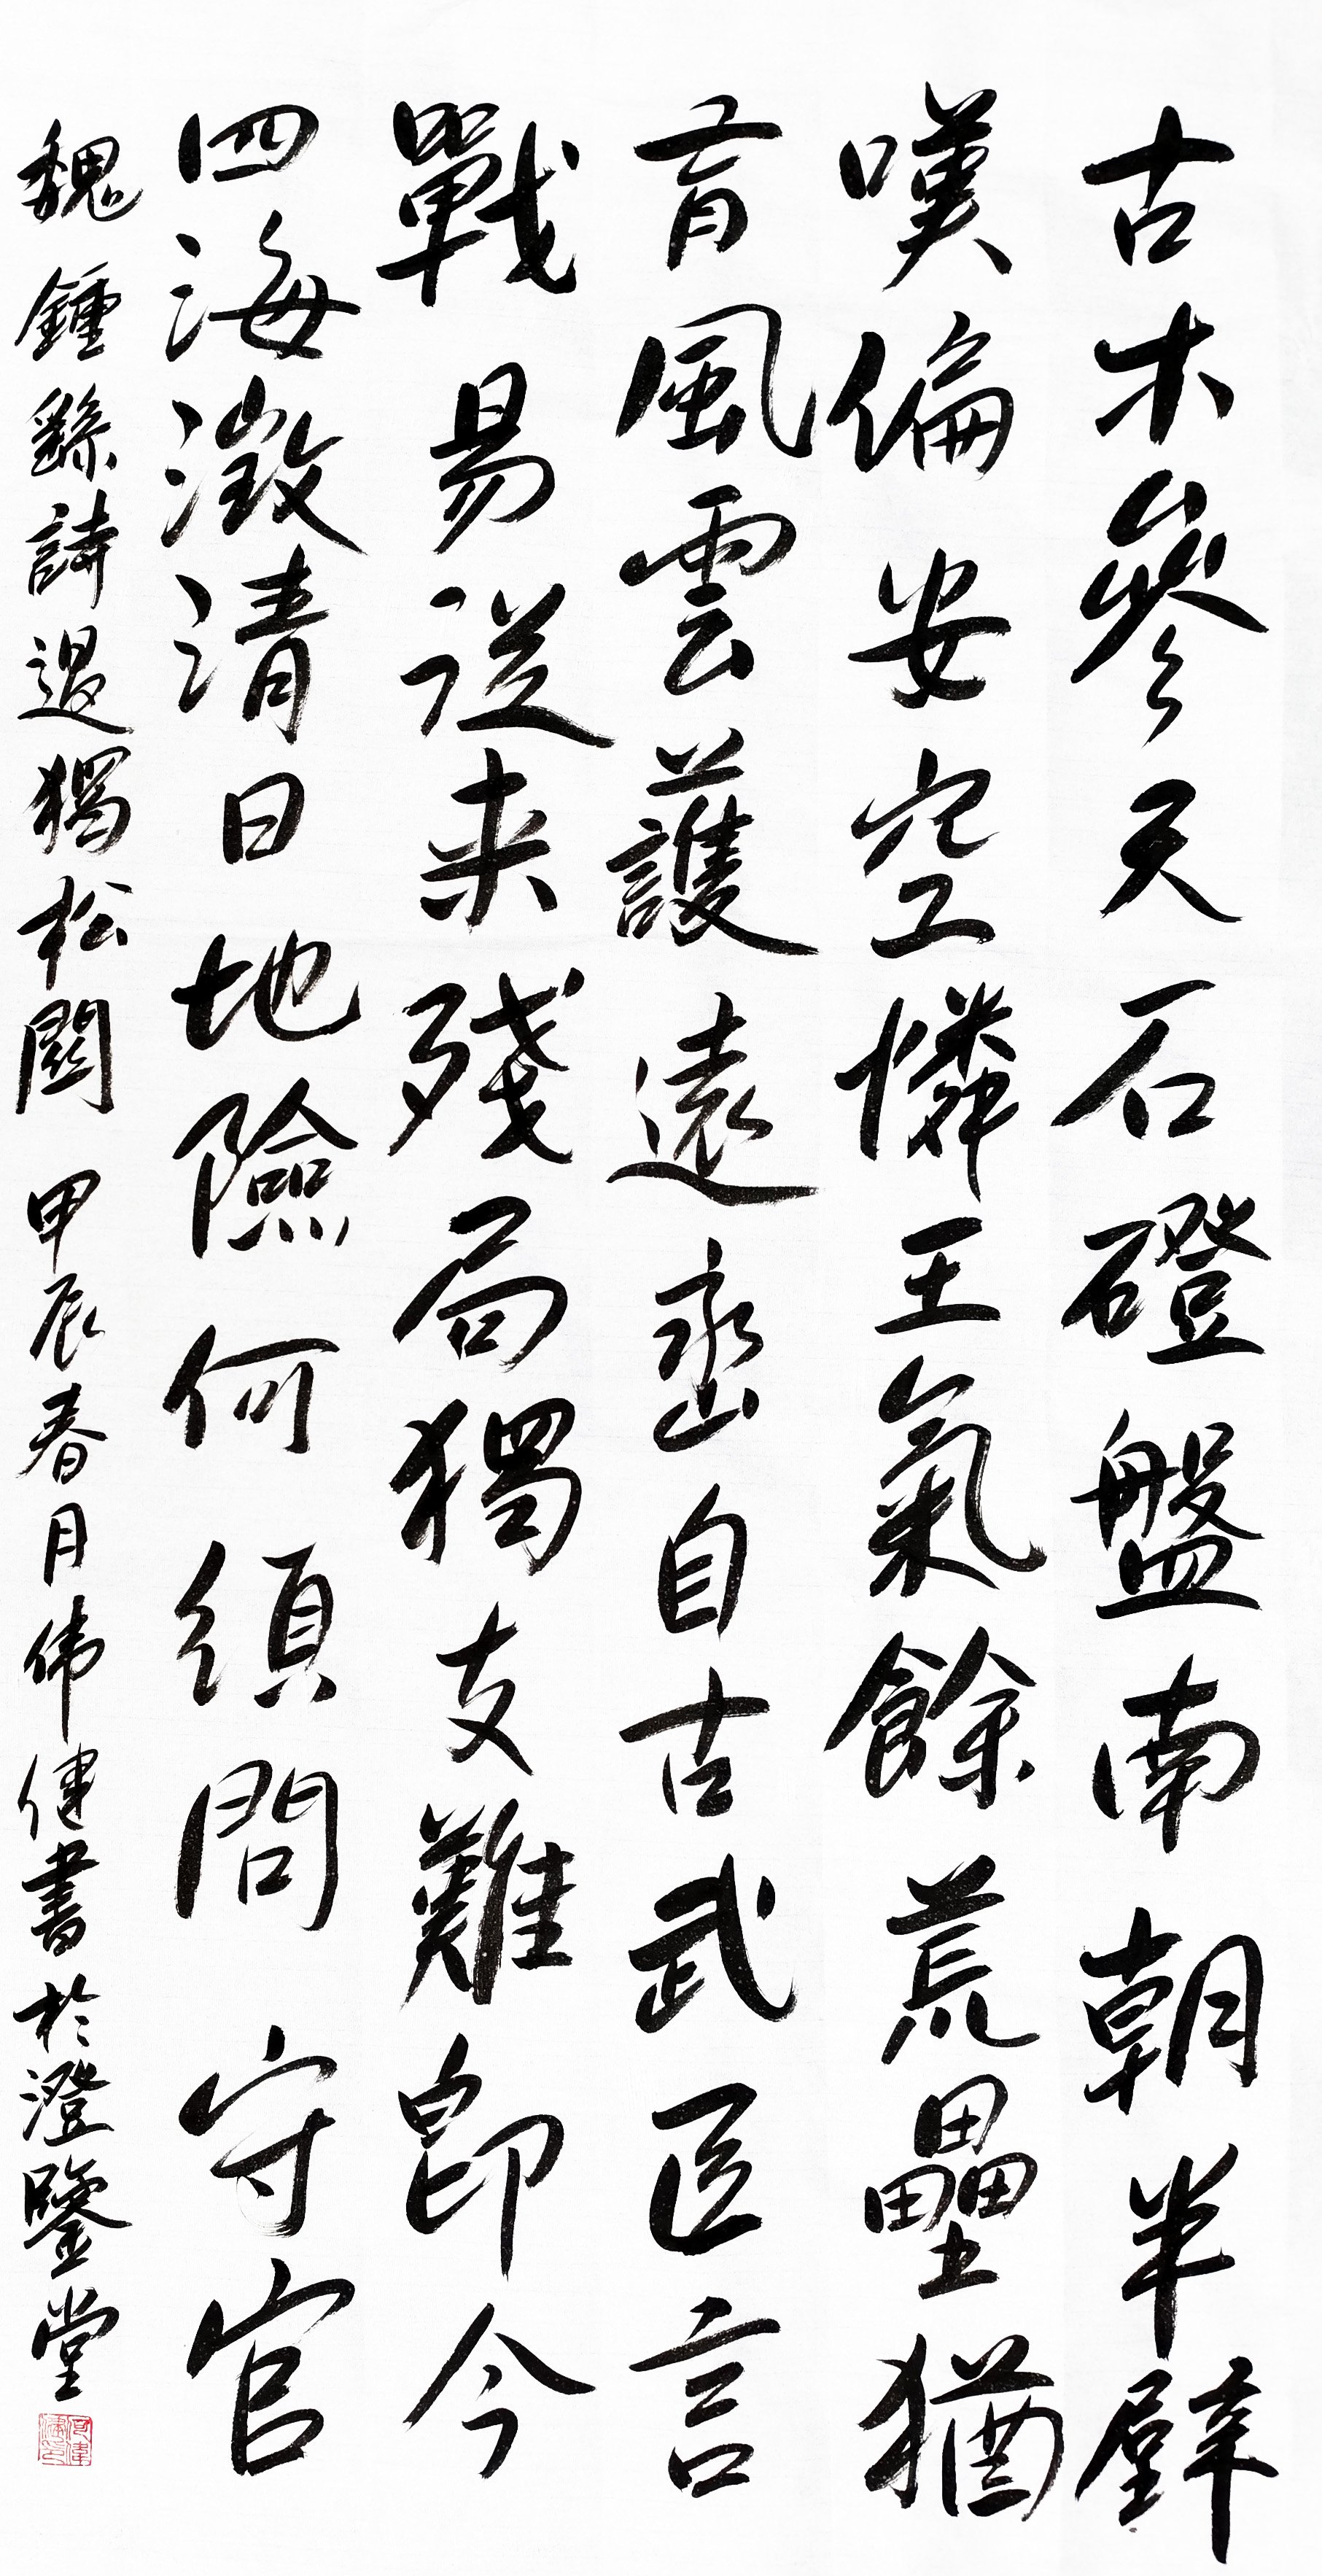 古木參天石磴盤南朝半壁
嘆偏安空憐王氣餘荒壘猶
有風雲護遠巒自古武臣言
戰易從来殘局獨支難即今
四海澂清日地險何須問守官
魏鍾繇詩過獨松關 甲辰春月伟健書於澄鑒堂
何偉健印